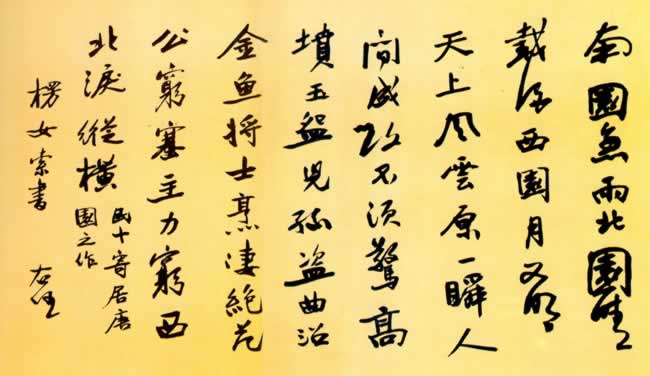 南園急雨北園晴
得西園月又明
天上风雲原一瞬人
間成敗不須驚高
墳玉盌兒孫盗曲沼
金鱼将士烹凄絕范
公窮塞主力窮西
北淚縱橫
民十寄居唐
園之作
楞女索書 右任